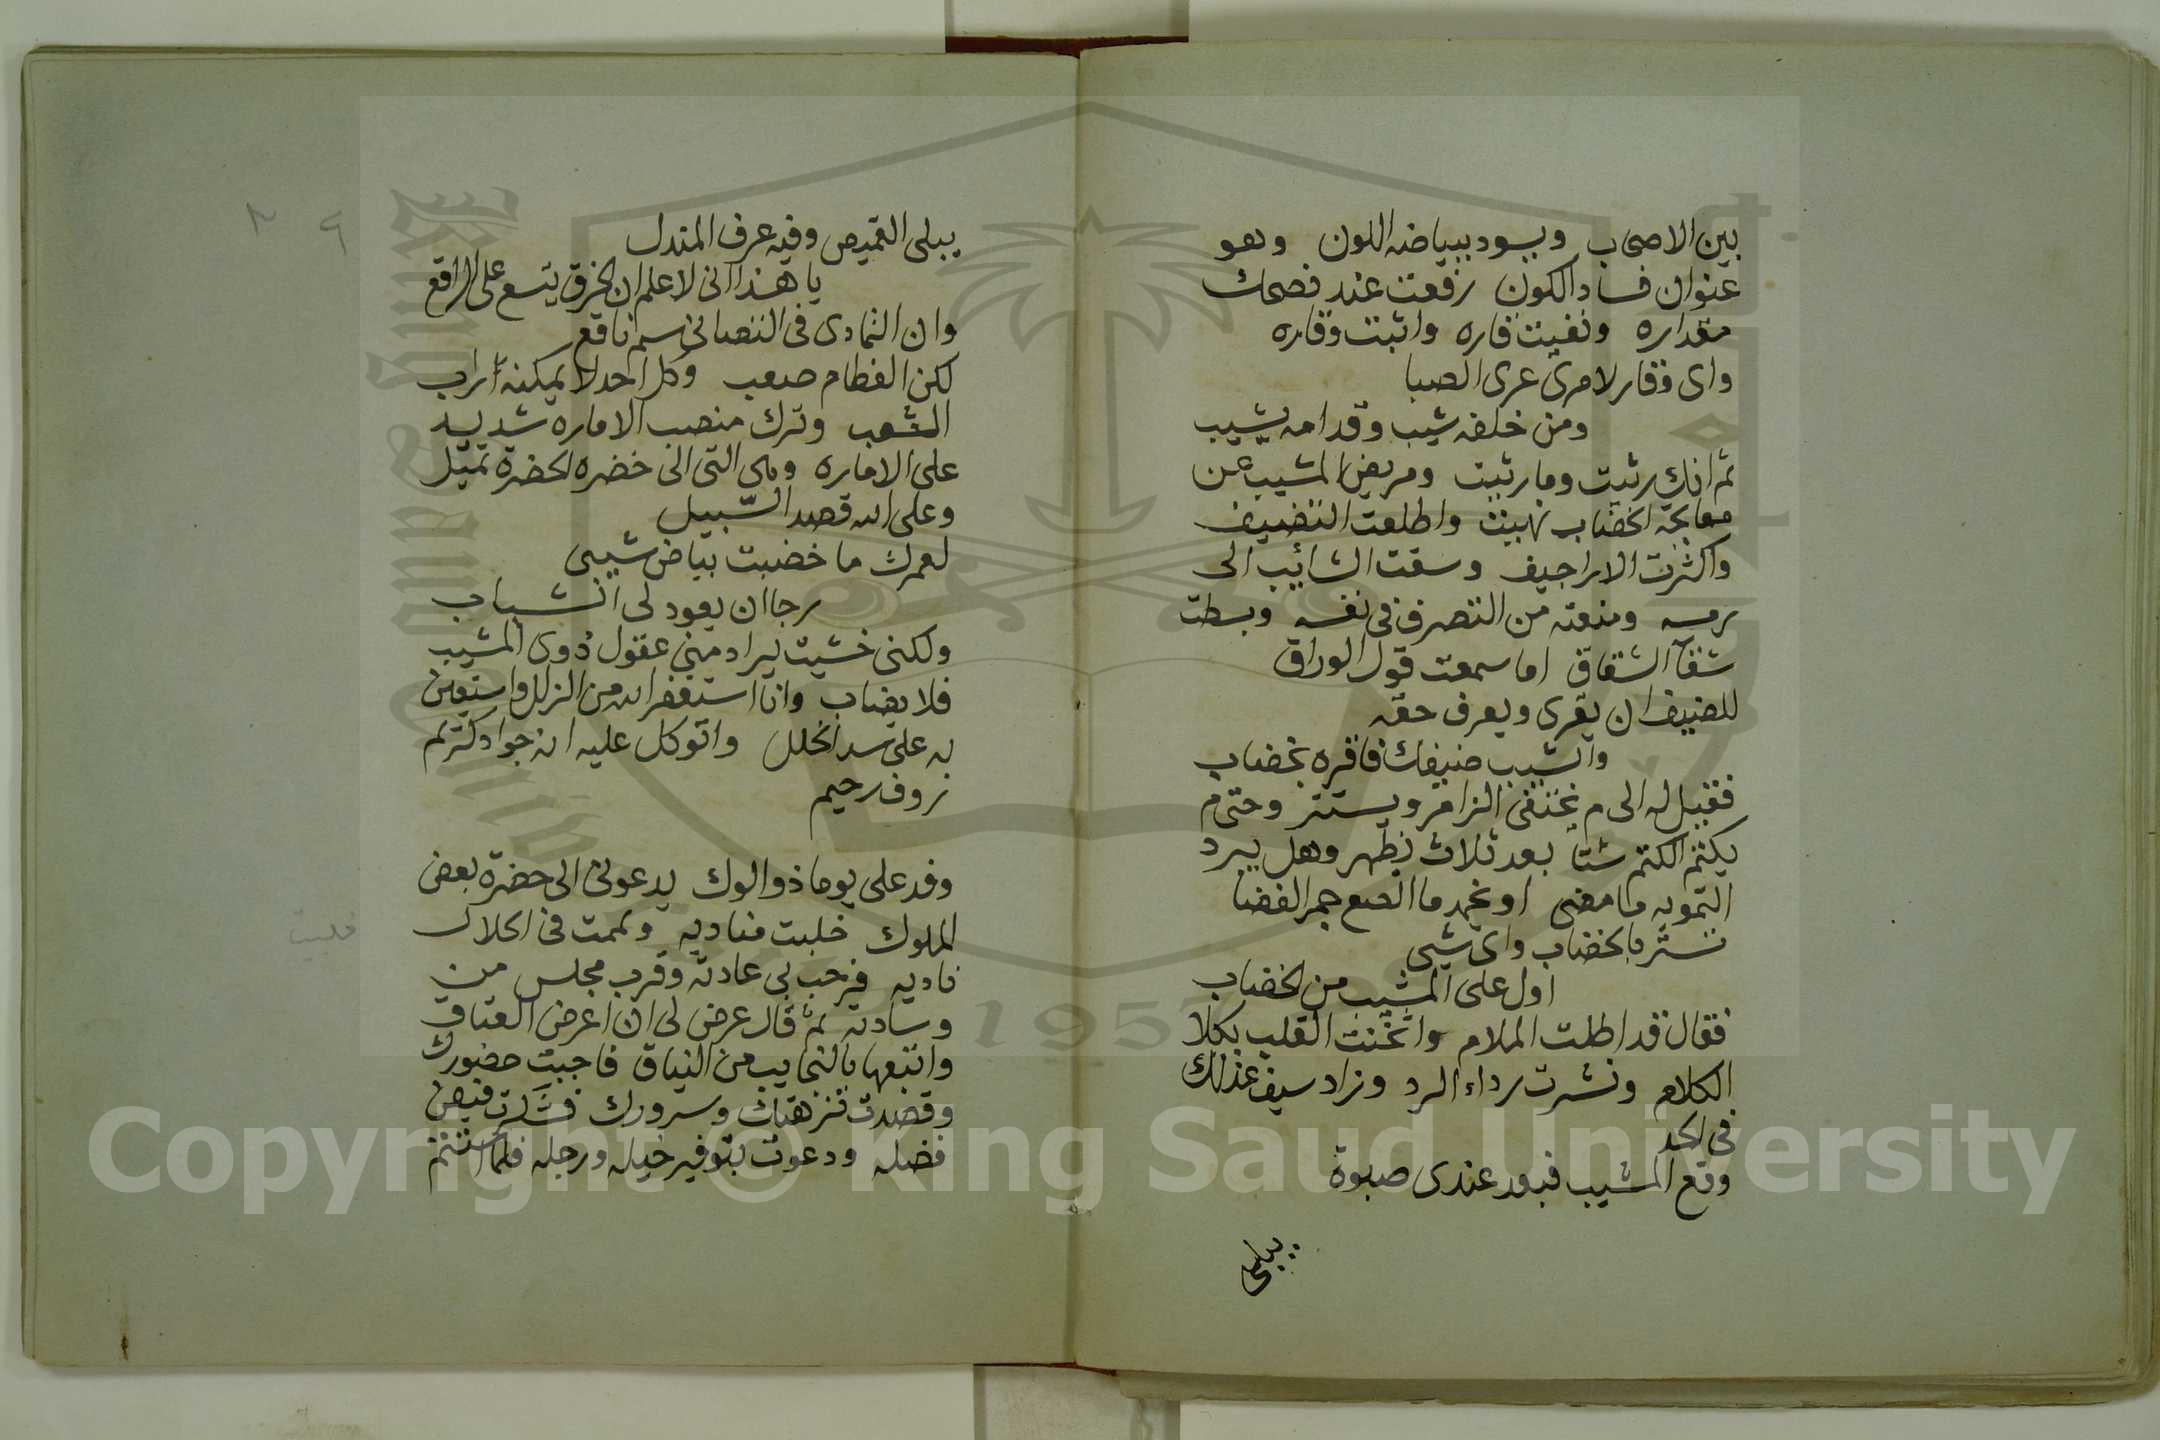 بين الاصحاب ويسود ببياضه اللون وهو
عنوان فساد الكون رفعت عند فصحك
مقداره ونفيت قاره واثبت وقاره
واى وقار لامرئ عرى الصبا
ومن خلفه شيب وقدامه شيب
ثم انك رثيت وما رثيت ومريض المشيب عن
معالجة الخضاب نهيت واطلعت التضييف
واكثرت الاراجيف وسقت الشائب الى
رمسه ومنعته من التصرف فى نفسه وبسطت
شقآ الشقاق اما سمعت قول الوراق
للضيف ان يقرى ويعرف حقه
والشيب ضيفك فاقره بخضاب
فقيل له الى م تختفى الزامر ويستتر وحتى م
يكتم الكتم شئا بعد ثلاث يظهر وهل يرد
التمويه ما مضى او يخمد ما الصبع جمر الغضا
تستر بالخضاب واى شيى
اول على المشيب من الخضاب
فقال قد اطلت الملام واثخنت القلب بكلا
الكلام ونشرت رداء الرد وزاد سيف عذلك
فى الحد
وقع المشيب فبعد عندى صبوة
يبلى
يبلى القميص وفيه عرف المندل
يا هذا انى لاعلم ان الخرق يتسع على الراقع
وان التمادى فى التصابى سم ناقع
لكن الفطام صعب وكل احد لا يمكنه أراب
الشعب وترك منصب الاماره شديد
على الاماره وهى التى الى خضره الحضرة تميل
وعلى الله قصد السّبيل
لعمرك ما خضبت بياض شيبى
رجا ان يعود لى الشباب
ولكنى خشيت يراد منى عقول ذوى المشيب
فلا يصاب وانا استغفر الله من الزلل واستعين
به على سد الخلل واتوكل عليه انه جواد كريم
رءوف رحيم
وفد على يوما ذو الوك يدعونى الى حضرة بعض
الملوك خلبيت مناديه ويممت فى الحال
خلبيت
ناديه فرحب بى عادته وقرب مجلس من
وسادته ثم قال عرض لى ان اعرض العتاق
واتبعها بالنجايب من النياق فاجبت حضورك
وقصدت نزهتك وسرورك فشكرت فيض
فضله ودعوت بتوفير خيله ورجله فلما استتم
1957
Copyright © King Saud University